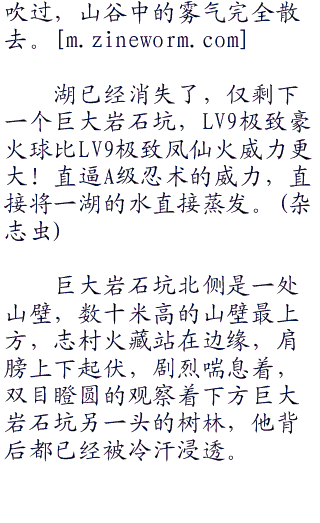 吹过，山谷中的雾气完全散
去。[m.zineworm.com]
湖已经消失了，仅剩下
一个巨大岩石坑，LV9极致豪
火球比LV9极致凤仙火威力更
大！直逼A级忍术的威力，直
接将一湖的水直接蒸发。(杂
志虫)
巨大岩石坑北侧是一处
山壁，数十米高的山壁最上
方，志村火藏站在边缘，肩
膀上下起伏，剧烈喘息着，
双目瞪圆的观察着下方巨大
岩石坑另一头的树林，他背
后都已经被冷汗浸透。